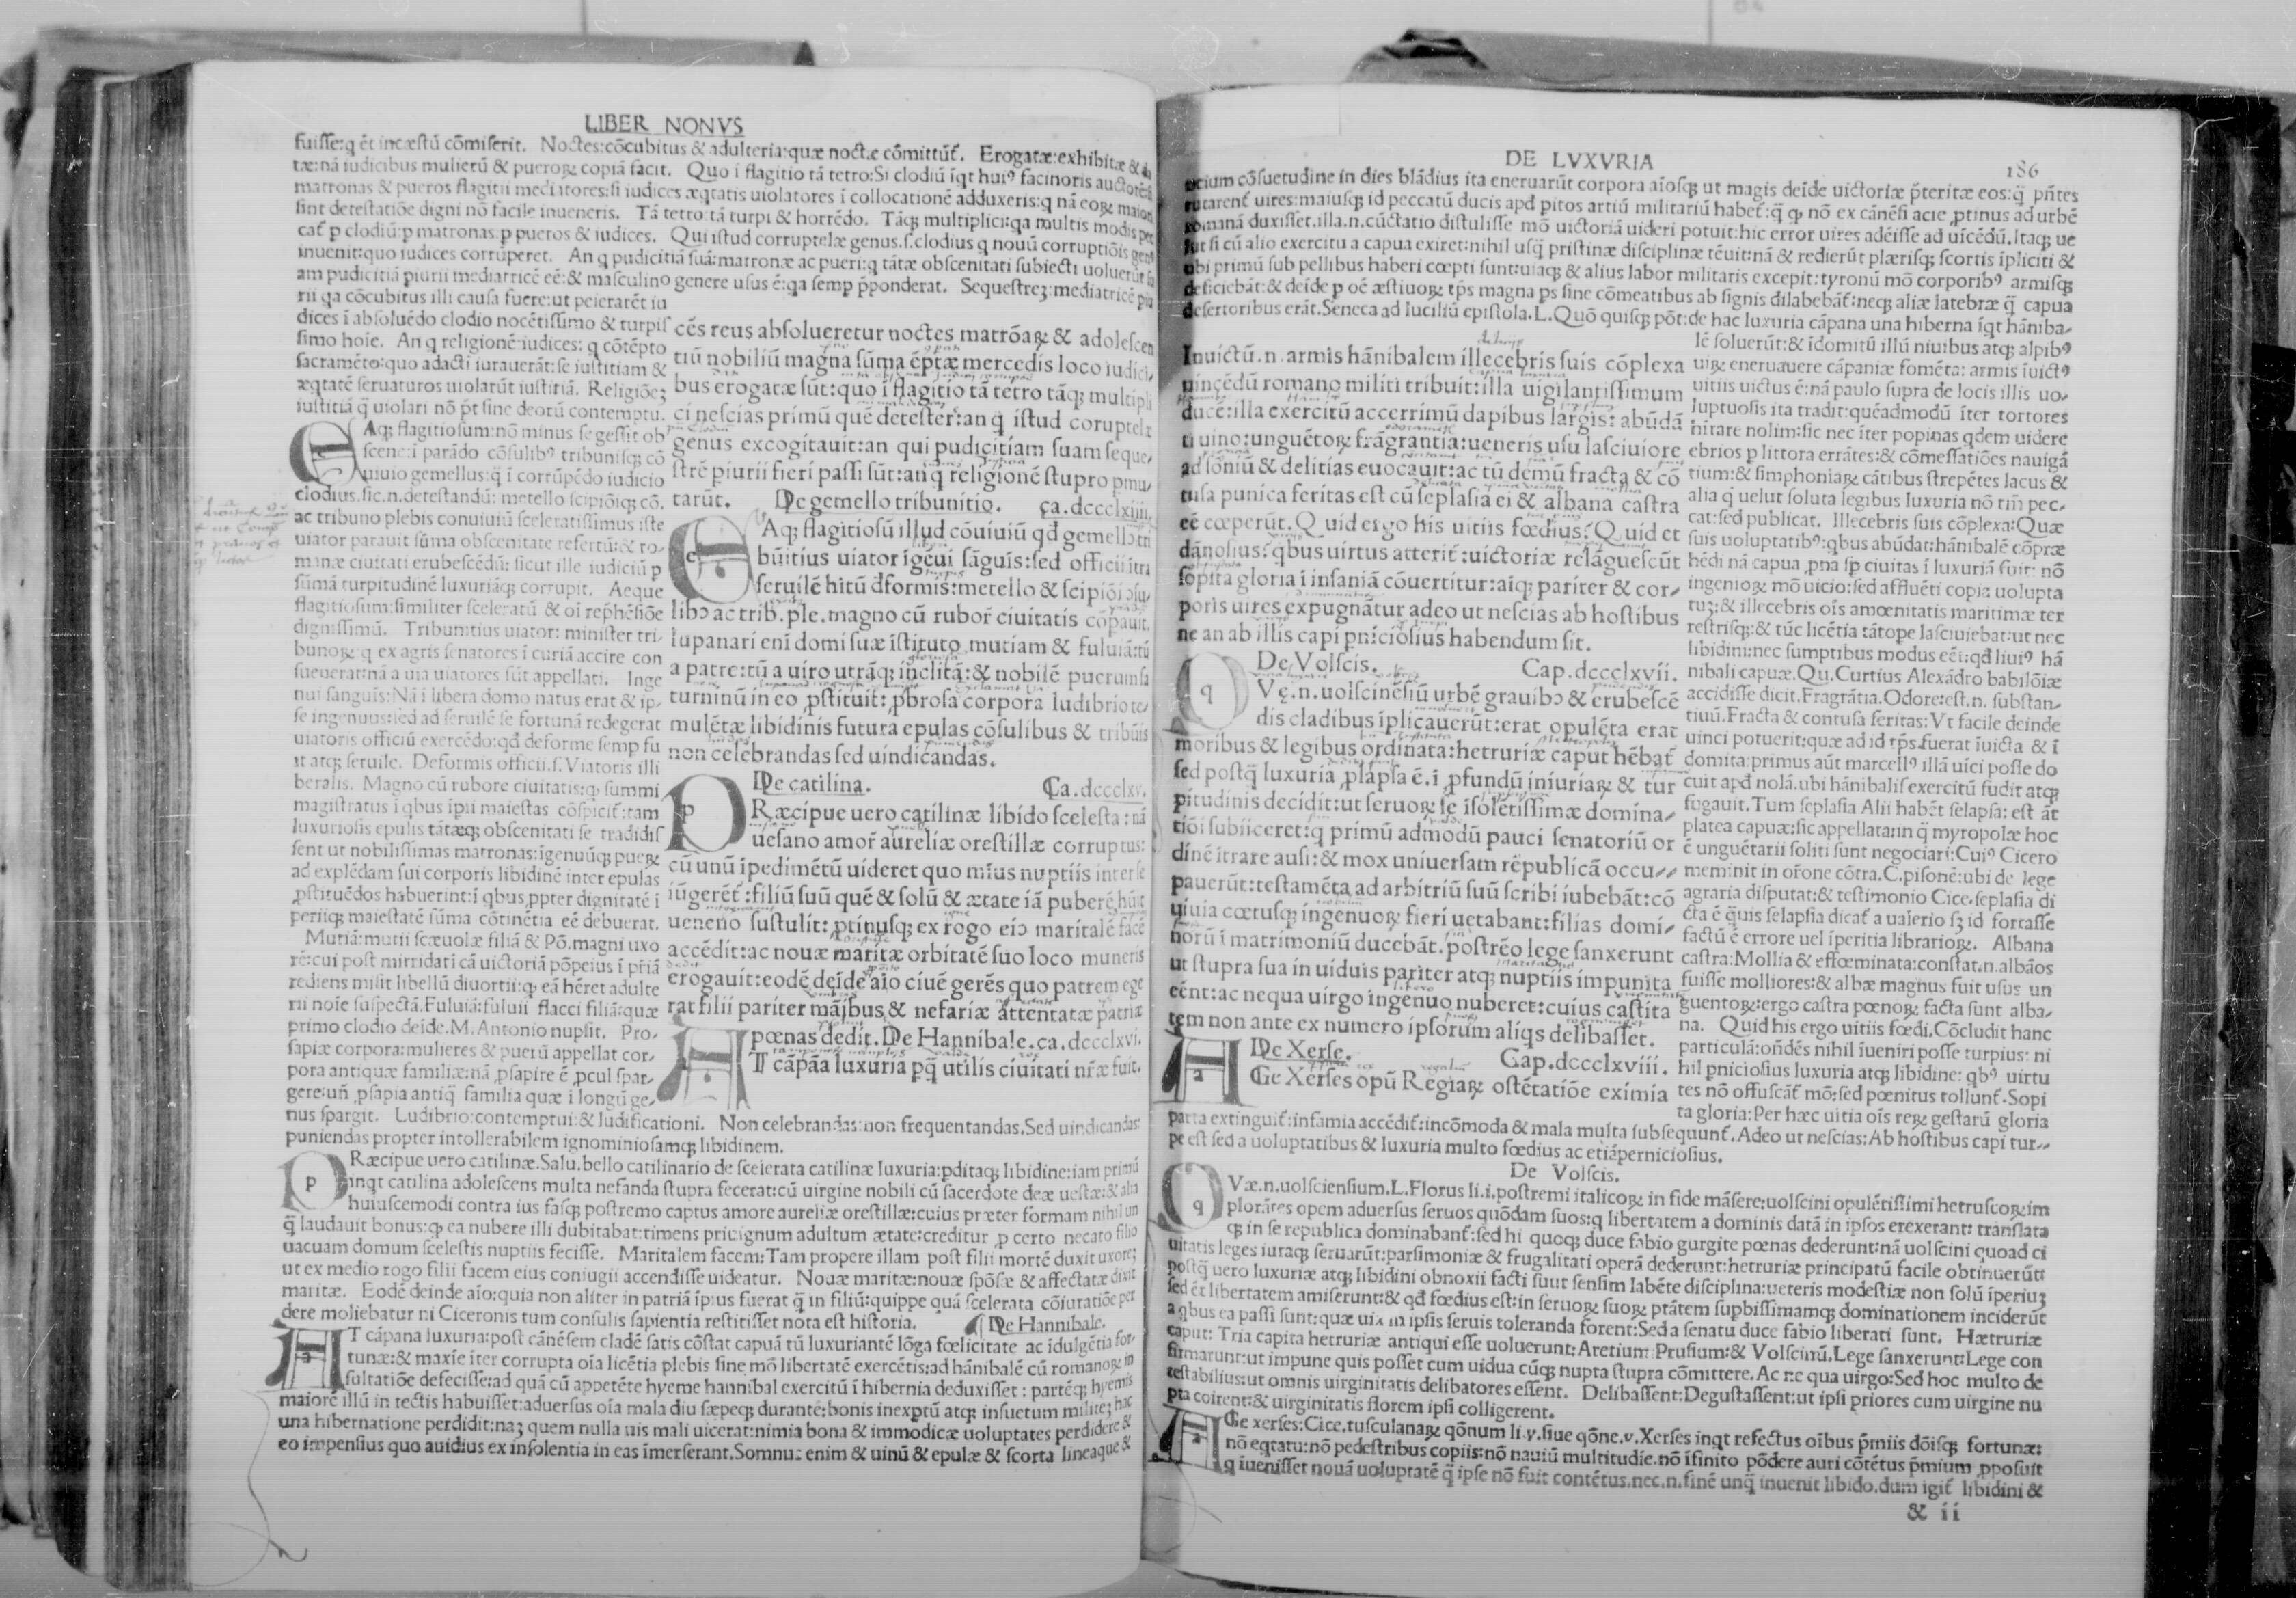 LIBER NONVS
fuisse:q ét incæstū cōmiserit. Noctes:cōcubitus & adulteria:quæ nocte cōmittūt̄. Erogatæ:exhibitæ &
tæ:nā iudicibus mulierū & pueroꝝ copiā facit. Quo ī flagitio tā tetro:Si clodiū īqt huiꝰ facinoris
matronas & pueros flagitii mediatores:si iudices æqtatis uiolatores ī collocationē adduxeris:q nā eoꝝ maiori
sint detestatiōe digni nō facile inueneris. Tā tetro:tā turpi & horrēdo. Tāqꝫ multiplici:qa multis modis
cat̄ p clodiū:p matronas:p pueros & iudices. Qui istud corruptelæ genus.s.clodius q nouū corruptiōis
inuenit:quo iudices corrūperet. An q pudicitiā suā:matronæ ac pueri:q tātæ obscenitati subiecti uoluerūt
am pudicitiā piurii mediatricē eē:& masculino genere usus ē:qa semp p̄ponderat. Sequestreꝫ:mediatricē
rii qa cōcubitus illi causa fuere:ut peierarēt iu
dices ī absoluēdo clodio nocētissimo & turpis
simo hoīe. An q religionē:iudices: q cōtēpto
sacramēto:quo adacti iurauerāt:se iustitiam &
æqtatē seruaturos uiolarūt iustitiā. Religiōeꝫ
iustitiā q̄ uiolari nō p̄t sine deorū contemptu.
Aqꝫ flagitiosum:nō minus se gessit ob
scene:ī parādo cōsulibꝰ tribunisqꝫ cō
uiuio gemellus:q̄ ī corrūpēdo iudicio
clodius.sic.n.detestandū: metello scipiōiqꝫ cō.
ac tribuno plebis conuiuiū sceleratissimus iste
uiator parauit sūma obscenitate refertū:& ro-
manæ ciuitati erubescēdū: sicut ille iudiciū p
sūmā turpitudinē luxuriāqꝫ corrupit. Aeque
flagitiosum:similiter sceleratū & oī rephēsiōe
dignissimū. Tribunitius uiator: minister tri-
bunoꝝ q ex agris senatores ī curiā accire con
sueuerat:nā a uia uiatores sūt appellati. Inge
nui sanguīs:Nā ī libera domo natus erat & ip-
se ingenuus:sed ad seruilē se fortunā redegerat
uiatoris officiū exercēdo:qd̄ deforme semp fu
it atqꝫ seruile. Deformis officii.s.Viatoris illi
beralis. Magno cū rubore ciuitatis:qꝫ summi
magistratus ī qbus ipii maiestas cōspicit̄:tam
luxuriosis epulis tātæqꝫ obscenitati se tradidis
sent ut nobilissimas matronas:īgenuūqꝫ pueꝝ
ad explēdam sui corporis libidinē inter epulas
ꝓstituēdos habuerint:ī qbus ꝓpter dignitatē ī
periiqꝫ maiestatē sūma cōtinētia eē debuerat.
Mutiā:mutii scæuolæ filiā & Pō.magni uxo
rē:cui post mitridati cā uictoriā pōpeius ī p̄riā
rediens misit libellū diuortii:qꝫ eā hēret adulte
rii noīe suspectā.Fuluiā:fuluii flacci filiā:quæ
primo clodio deīde.M.Antonio nupsit. Pro-
sapiæ corpora:mulieres & puerū appellat cor-
pora antiquæ familiæ:nā ꝓsapire ē ꝓcul spar-
gere:un̄ ꝓsapia antiq̄ familia quæ ī longū ge-
nus spargit. Ludibrio:contemptui:& ludificationi. Non celebrandas:non frequentandas.Sed uindicandas:
puniendas propter intollerabilem ignominiosamqꝫ libidinem.
cēs reus absolueretur noctes matrōaꝝ & adolescen
tiū nobiliū magna sūma ēptæ mercedis loco iudici-
bus erogatæ sūt:quo ī flagitio tā tetro tāqꝫ multipli
ci nescias primū quē detester:an q̄ istud coruptelæ
genus excogitauit:an qui pudicitiam suam seque-
strē piurii fieri passi sūt:an q̄ religionē stupro pmu-
tarūt. De gemello tribunitio. Ca.dccclxiiii.
Aqꝫ flagitiosū illud cōuiuiū qd̄ gemello tri
būitius uiator īgeui sāguīs:sed officii ītra
seruilē hitū dformis:metello & scipiōi cōsu-
libꝰ ac trib.ple.magno cū ruboř ciuitatis cōpauit.
lupanari enī domi suæ īstituto mutiam & fuluiā:tū
a patre:tū a uiro utrāqꝫ īnclitā:& nobilē puerum sa
turninū in eo ꝓstituit:ꝓbrosa corpora ludibrio te-
mulētæ libidinis futura epulas cōsulibus & tribūis
non celebrandas sed uindicandas.
De catilina. Ca.dccclxv.
RÆcipue uero catilinæ libido scelesta:nā
uesano amoř aureliæ orestillæ corruptus:
cū unū īpedimētū uideret quo mīus nuptiis inter se
iūgerēt̄:filiū suū quē & solū & ætate iā puberē hūit
ueneno sustulit: ꝓtinusqꝫ ex rogo eiꝰ maritalē facē
accēdit:ac nouæ maritæ orbitatē suo loco muneris
erogauit:eodē deīde aīo ciuē gerēs quo patrem ege
rat filii pariter māibus & nefariæ attentatæ patriæ
pœnas dedit. De Hannibale.ca.dccclxvi.
T cāpāa luxuria pq̄ utilis ciuitati nr̄æ fuit.
RÆcipue uero catilinæ.Salu.bello catilinario de scelerata catilinæ luxuria:pditaqꝫ libidine:iam primū
inqt catilina adolescens multa nefanda stupra fecerat:cū uirgine nobili cū sacerdote deæ uestæ:& alia
huiuscemodi contra ius fasqꝫ postremo captus amore aureliæ orestillæ:cuius præter formam nihil un
q̄ laudauit bonus:qꝫ ea nubere illi dubitabat:timens priuignum adultum ætate:creditur ꝓ certo necato filio
uacuam domum scelestis nuptiis fecisse. Maritalem facem:Tam propere illam post filii mortē duxit uxoreꝫ
ut ex medio rogo filii facem eius coniugii accendisse uideatur. Nouæ maritæ:nouæ spōsæ & affectatæ dixit
maritæ. Eodē deinde aīo:quia non aliter in patriā īpius fuerat q̄ in filiū:quippe quā scelerata cōiuratiōe per
dere moliebatur ni Ciceronis tum consulis sapientia restitisset nota est historia. De Hannibale.
T cāpana luxuria:post cānēsem cladē satis cōstat capuā tū luxuriantē lōga fœlicitate ac īdulgētia for-
tunæ:& maxīe īter corrupta oīa licētia plebis sine mō libertatē exercētis:ad hānibalē cū romanoꝝ in
sultatiōe defecisse:ad quā cū appetēte hyeme hannibal exercitū ī hibernia deduxisset: partēqꝫ hyemis
maiorē illū in tectis habuisset:aduersus oīa mala diu sæpeqꝫ durantē:bonis inexptū atqꝫ insuetum militeꝫ hac
una hibernatione perdidit:naꝫ quem nulla uis mali uicerat:nimia bona & immodicæ uoluptates perdidere &
eo impensius quo auidius ex insolentia in eas īmerserant.Somnu: enim & uinū & epulæ & scorta lineaque &
DE LVXVRIA
186
ocium cōsuetudine in dies blādius ita eneruarūt corpora aīosqꝫ ut magis deīde uictoriæ p̄teritæ eos:q̄ pn̄tes
tutarent̄ uires:maiusqꝫ id peccatū ducis apd̄ pitos artiū militariū habet̄:q̄ qꝫ nō ex cānēsi acie ꝓtinus ad urbē
romanā duxisset.illa.n.cūctatio distulisse mō uictoriā uideri potuit:hic error uires adēisse ad uīcēdū.Itaqꝫ ue
lut si cū alio exercitu a capua exiret:nihil usq̄ pristinæ disciplinæ tēuit:nā & redierūt plærisqꝫ scortis īpliciti &
ubi primū sub pellibus haberi cœpti sunt:uiaqꝫ & alius labor militaris excepit:tyronū mō corporibꝰ armisqꝫ
deficiebāt:& deīde p oē æstiuoꝝ tp̄s magna ps sine cōmeatibus ab signis dilabebāt̄:neqꝫ aliæ latebræ q̄ capua
desertoribus erāt.Seneca ad luciliū epistola.L.Quō quisqꝫ pōt:de hac luxuria cāpana una hiberna īqt hāniba-
Inuictū.n.armis hānibalem illecebris suis cōplexa
uīncēdū romano militi tribuit:illa uigilantissimum
ducē:illa exercitū accerrimū dapibus largis: abūdā
ti uino:unguētoꝝ frāgrantia:ueneris usu lasciuiore
ad sōniū & delitias euocauit:ac tū demū fracta & cō
tusa punica feritas est cū seplasia ei & albana castra
eē cœperūt.Quid ergo his uitiis fœdius?Quid et
dānosius?qbus uirtus atterit̄:uictoriæ relāguescūt
sopita gloria ī infaniā cōuertitur:aīqꝫ pariter & cor-
poris uires expugnātur adeo ut nescias ab hostibus
ne an ab illis capi pniciosius habendum sit.
De Volscis. Cap.dccclxvii.
Vę.n.uolscinēsiū urbē grauibꝰ & erubescē
dis cladibus īplicauerūt:erat opulēta erat
moribus & legibus ordinata:hetruriæ caput hēbat̄
sed postq̄ luxuria ꝓlapsa ē.ī ꝓfundū iniuriaꝝ & tur
pitudinis decidit:ut seruoꝝ se īsolētissimæ domina-
tiōi subiiceret:q̄ primū admodū pauci senatoriū or
dinē ītrare ausi:& mox uniuersam rēpublicā occu-
pauerūt:testamēta ad arbitriū suū scribi iubebāt:cō
uiuia cœtusqꝫ ingenuoꝝ fieri uetabant:filias domi-
norū ī matrimoniū ducebāt.postrēo lege sanxerunt
ut stupra sua in uiduis pariter atqꝫ nuptiis impunita
eēnt:ac nequa uirgo ingenuo nuberet:cuius castita
tem non ante ex numero ipsorum alīqs delibasset.
De Xerse. Cap.dccclxviii.
Ge Xerses opū Regiaꝝ ostētatiōe eximia
lē soluerūt:& īdomitū illū niuibus atqꝫ alpibꝰ
uiꝝ eneruauere cāpaniæ fomēta: armis īuictꝰ
uitiis uictus ē:nā paulo supra de locis illis uo-
luptuosis ita tradit:quēadmodū īter tortores
hītare nolim:sic nec īter popinas qdem uidere
ebrios p littora errātes:& cōmessatiōes nauigā
tium:& simphoniaꝝ cātibus strepētes lacus &
alia q̄ uelut soluta legibus luxuria nō tm̄ pec-
cat:sed publicat. Illecebris suis cōplexa:Quæ
suis uoluptatibꝰ:qbus abūdat:hānibalē cōpræ
hēdi nā capua ꝓna sp ciuitas ī luxuriā fuit: nō
ingenioꝝ mō uicio:sed affluēti copia uolupta
tuꝫ:& illecebris oīs amœnitatis maritimæ ter
restrisqꝫ:& tūc licētia tātope lasciuiebat:ut nec
libidini:nec sumptibus modus eēt:qd̄ liuiꝰ hā
nibali capuæ.Qu.Curtius Alexādro babilōiæ
accidisse dicit.Fragrātia.Odore:est.n.substan-
tiuū.Fracta & contusa feritas:Vt facile deinde
uinci potuerit:quæ ad id tp̄s fuerat īuicta & ī
domita:primus aūt marcellꝰ illā uīci posse do
cuit apd̄ nolā.ubi hānibalis exercitū fudit atqꝫ
fugauit.Tum seplasia Alii habēt selapsia: est āt
platea capuæ:sic appellata:in q̄ myropolæ hoc
ē unguētarii soliti sunt negociari:Cuiꝰ Cicero
meminit in oīone cōtra.C.pisonē:ubi de lege
agraria disputat:& testimonio Cice.seplasia di
cta ē q̄uis selapsia dicat̄ a ualerio sꝫ id fortasse
factū ē errore uel īperitia librarioꝝ. Albana
castra:Mollia & effœminata:constat.n.albāos
fuisse molliores:& albæ magnus fuit usus un
guentoꝝ:ergo castra pœnoꝝ facta sunt alba-
na. Quid his ergo uitiis fœdi.Cōcludit hanc
particulā:on̄dēs nihil īueniri posse turpius: ni
hil pniciosius luxuria atqꝫ libidine: qbꝰ uirtu
tes nō offuscāt̄ mō:sed pœnitus tollunt̄.Sopi
ta gloria:Per hæc uitia oīs reꝝ gestarū gloria
parta extinguit̄:infamia accēdit̄:incōmoda & mala multa subsequunt̄.Adeo ut nescias:Ab hostibus capi tur-
pe est sed a uoluptatibus & luxuria multo fœdius ac etiā perniciosius.
De Volscis.
Væ.n.uolsciensium.L.Florus li.i.postremi italicoꝝ in fide māsere:uolscini opulētissimi hetruscoꝝ:im
plorātes opem aduersus seruos quōdam suos:q libertatem a dominis datā in ipsos erexerant: translata
qꝫ in se republica dominabant̄:sed hi quoqꝫ duce fabio gurgite pœnas dederunt:nā uolscini quoad ci
uitatis leges iuraqꝫ seruarūt:parsimoniæ & frugalitati operā dederunt:hetruriæ principatū facile obtinuerūt:
postq̄ uero luxuriæ atqꝫ libidini obnoxii facti suut sensim labēte disciplina:ueteris modestiæ non solū īperiuꝫ
sed ēt libertatem amiserunt:& qd̄ fœdius est:in seruoꝝ suoꝝ ptātem supbissimamqꝫ dominationem inciderūt
a qbus ea passi sunt:quæ uix in ipsis seruis toleranda forent:Sed a senatu duce fabio liberati sunt. Hætruriæ
caput: Tria capita hetruriæ antiqui esse uoluerunt:Aretium:Prusium:& Volscinū.Lege sanxerunt:Lege con
firmarunt:ut impune quis posset cum uidua cūqꝫ nupta stupra cōmittere.Ac ne qua uirgo:Sed hoc multo de
testabilius:ut omnis uirginitatis delibatores essent. Delibassent:Degustassent:ut ipsi priores cum uirgine nu
pta coirent:& uirginitatis florem ipsi colligerent.
Ge xerses:Cice.tusculanaꝝ qōnum li.v.siue qōne.v.Xerses inqt refectus oībus p̄miis dōisqꝫ fortunæ:
nō eqtatu:nō pedestribus copiis:nō nauiū multitudie.nō īfinito pōdere auri cōtētus p̄mium ꝓposuit
q īuenisset nouā uoluptatē q̄ ipse nō fuit contētus.nec.n.finē unq̄ inuenit libido.dum igit̄ libidini &
& ii